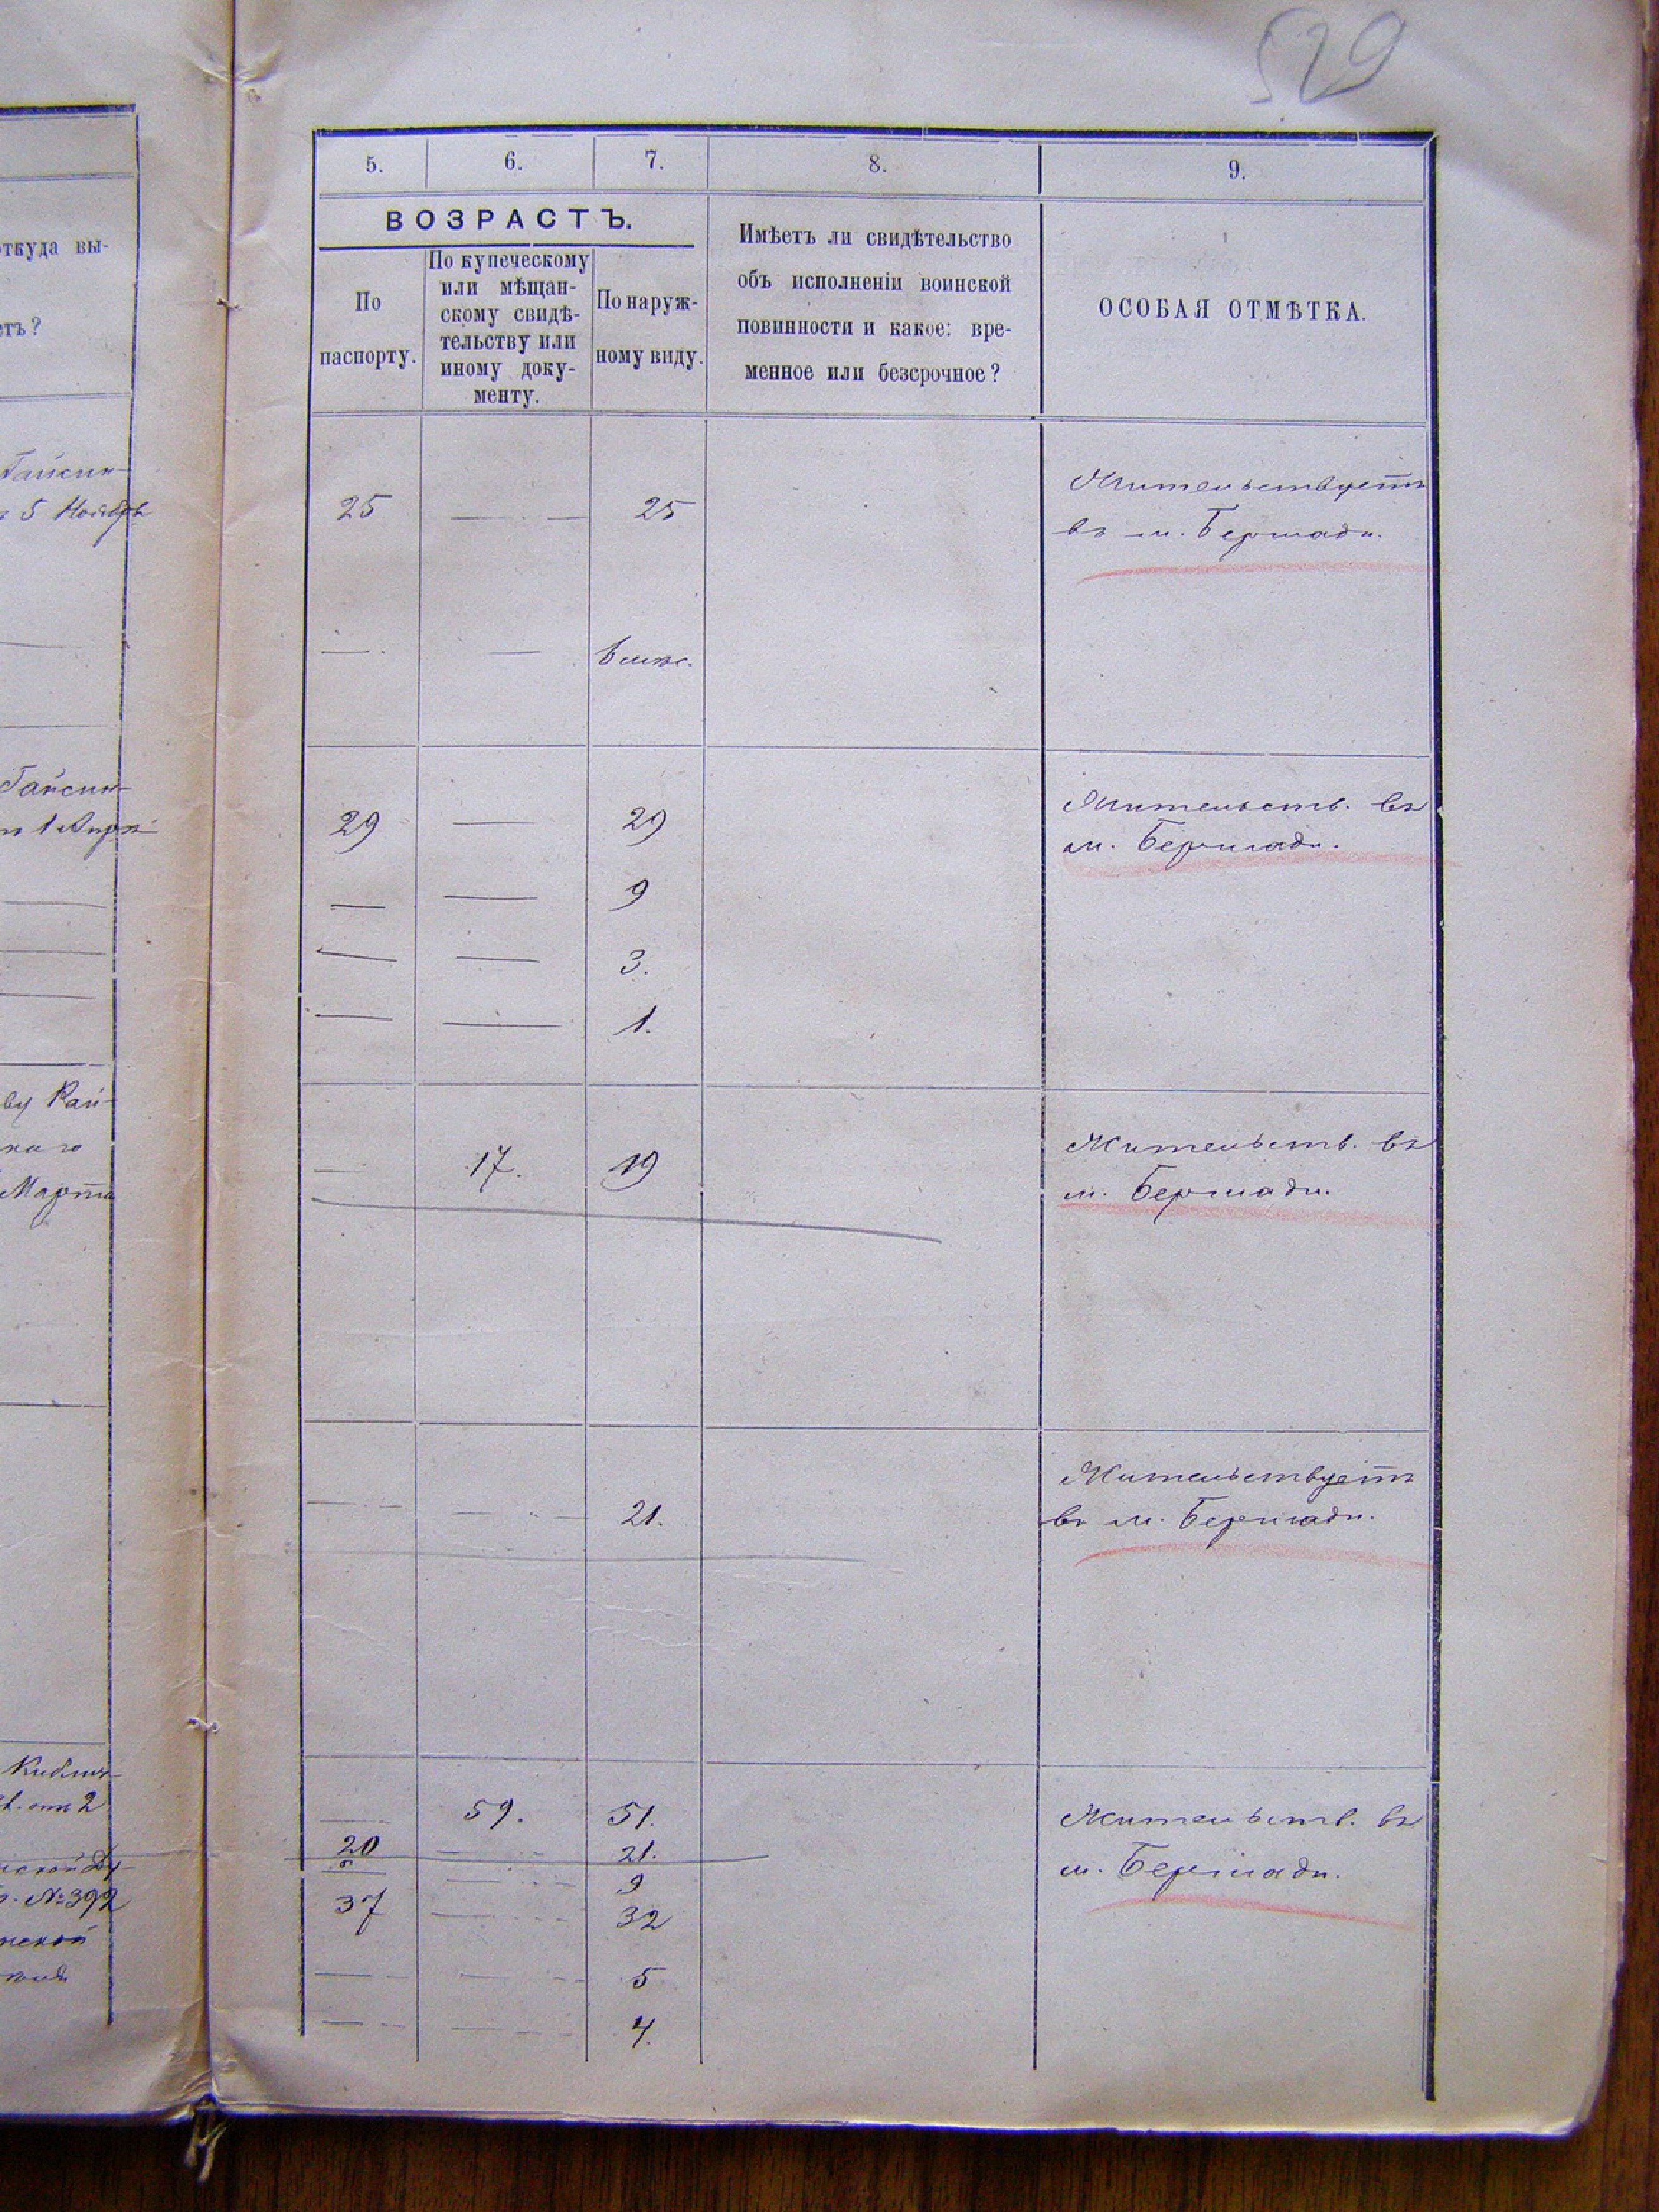 529
5. 6. 7. 8. 9.
ВОЗРАСТЪ.
По
паспорту.
По купеческому
или мѣщан-
скому свидѣ-
тельству или
иному доку-
менту.
По наруж-
ному виду.
Имѣетъ ли свидѣтельство
объ исполненіи воинской
повинности и какое: вре-
менное или безсрочное?
ОСОБАЯ ОТМѢТКА.
откуда вы-
етъ?
Гайсин-
5 Ноября
Гайсин-
1 Апрѣ
ву Кай-
наго
Марта
Киблич-
отъ 2
№ 392
нской
25 — 25 Жительствуетъ
въ м. Бершади.
— — 6 мѣс.
29 — 29 Жительств. въ
м. Бершади.
— — 9
— — 3.
— — 1.
— 17. 19 Жительств. въ
м. Бершади.
— — 21. Жительствуетъ
въ м. Бершади.
— 59. 51. Жительств. въ
20 — 21. м. Бершади.
— 9
37 — 32
— — 5
— — 4.